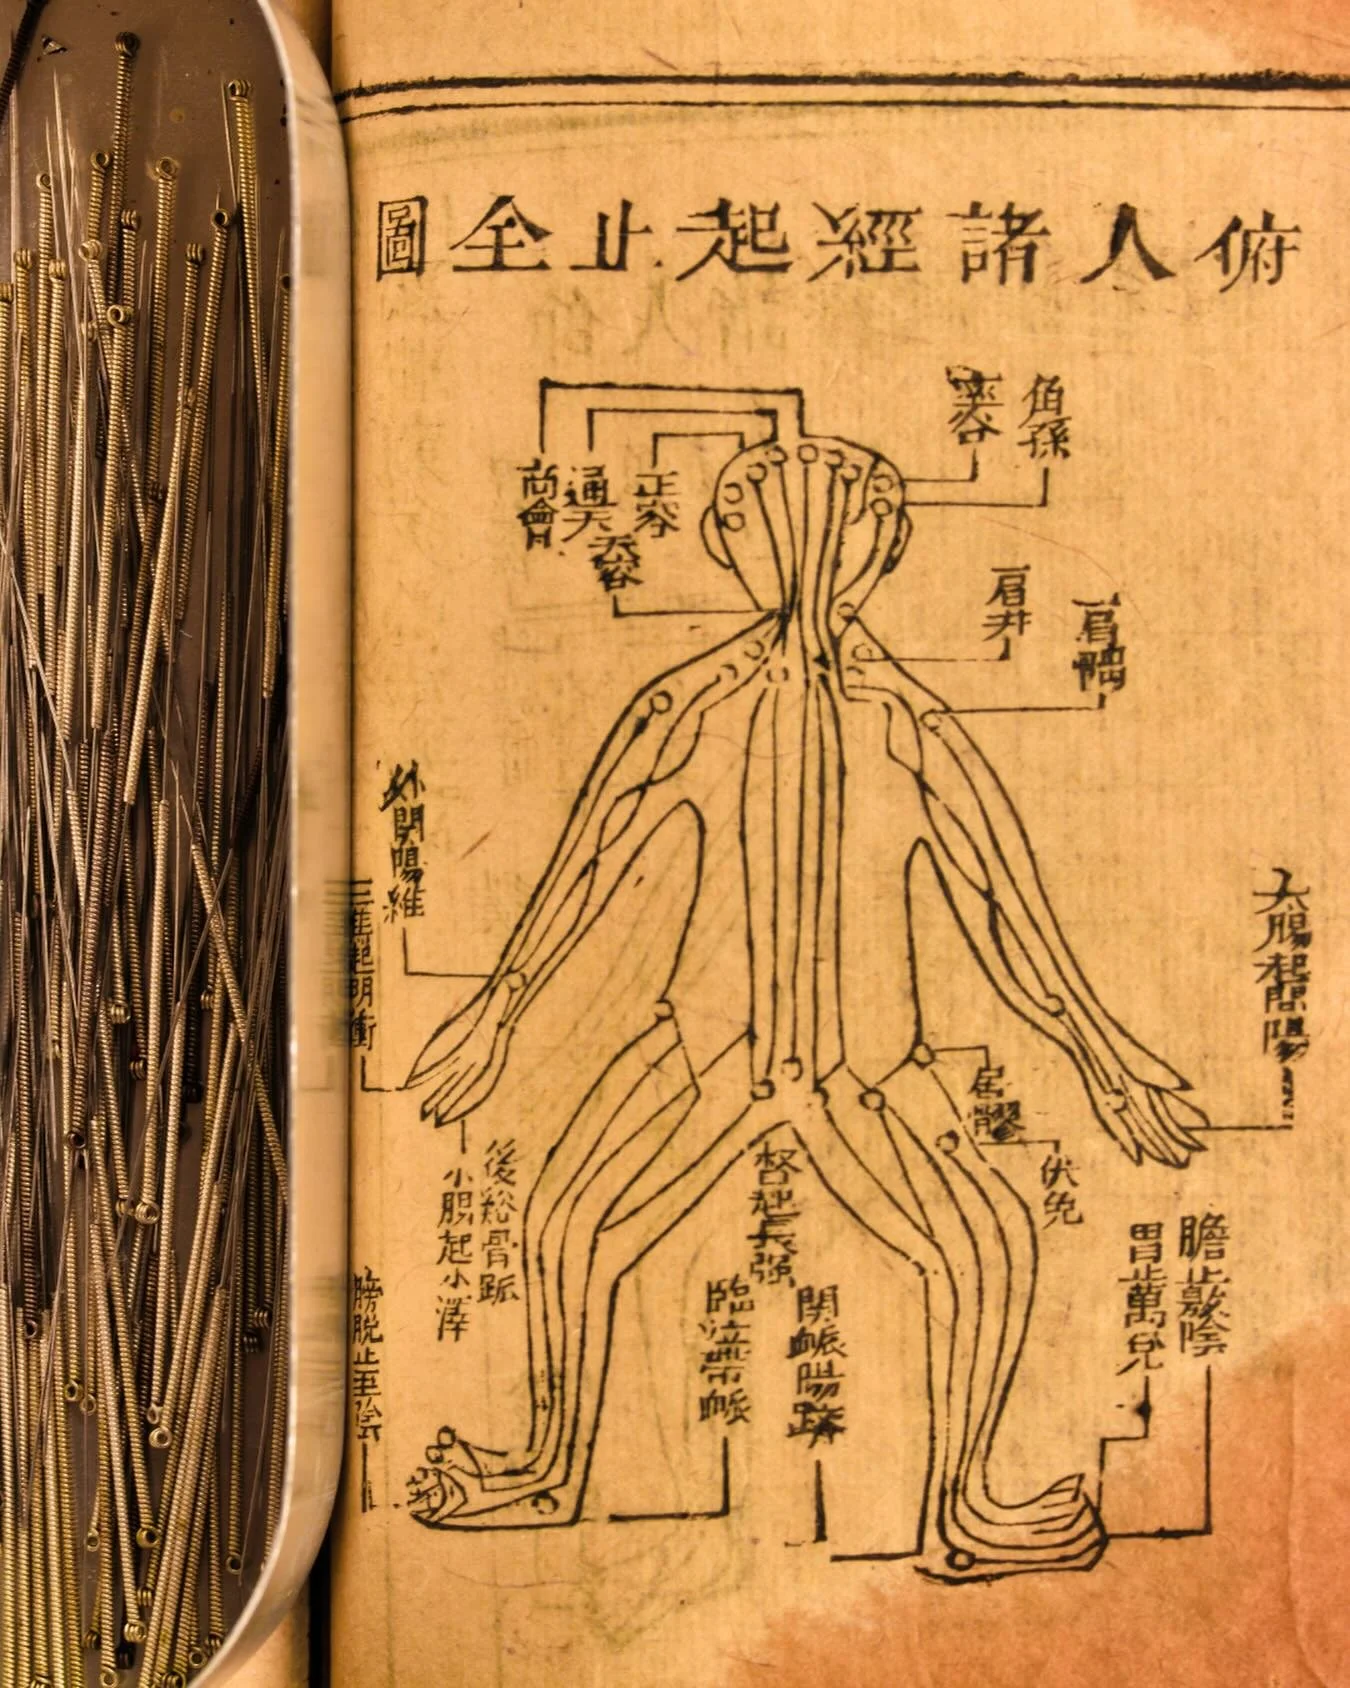 俯人諸經起止全圖
角孫
率谷
正容
通天
天容
尚會
肩井
肩髃
外關陽維
大腸起間陽
居髎
伏免
後谿骨脈
小腸起小澤
督起長强
臨泣帶脈
關脈陽蹻
膀胱止至陰
膽止竅陰
胃止萬兌